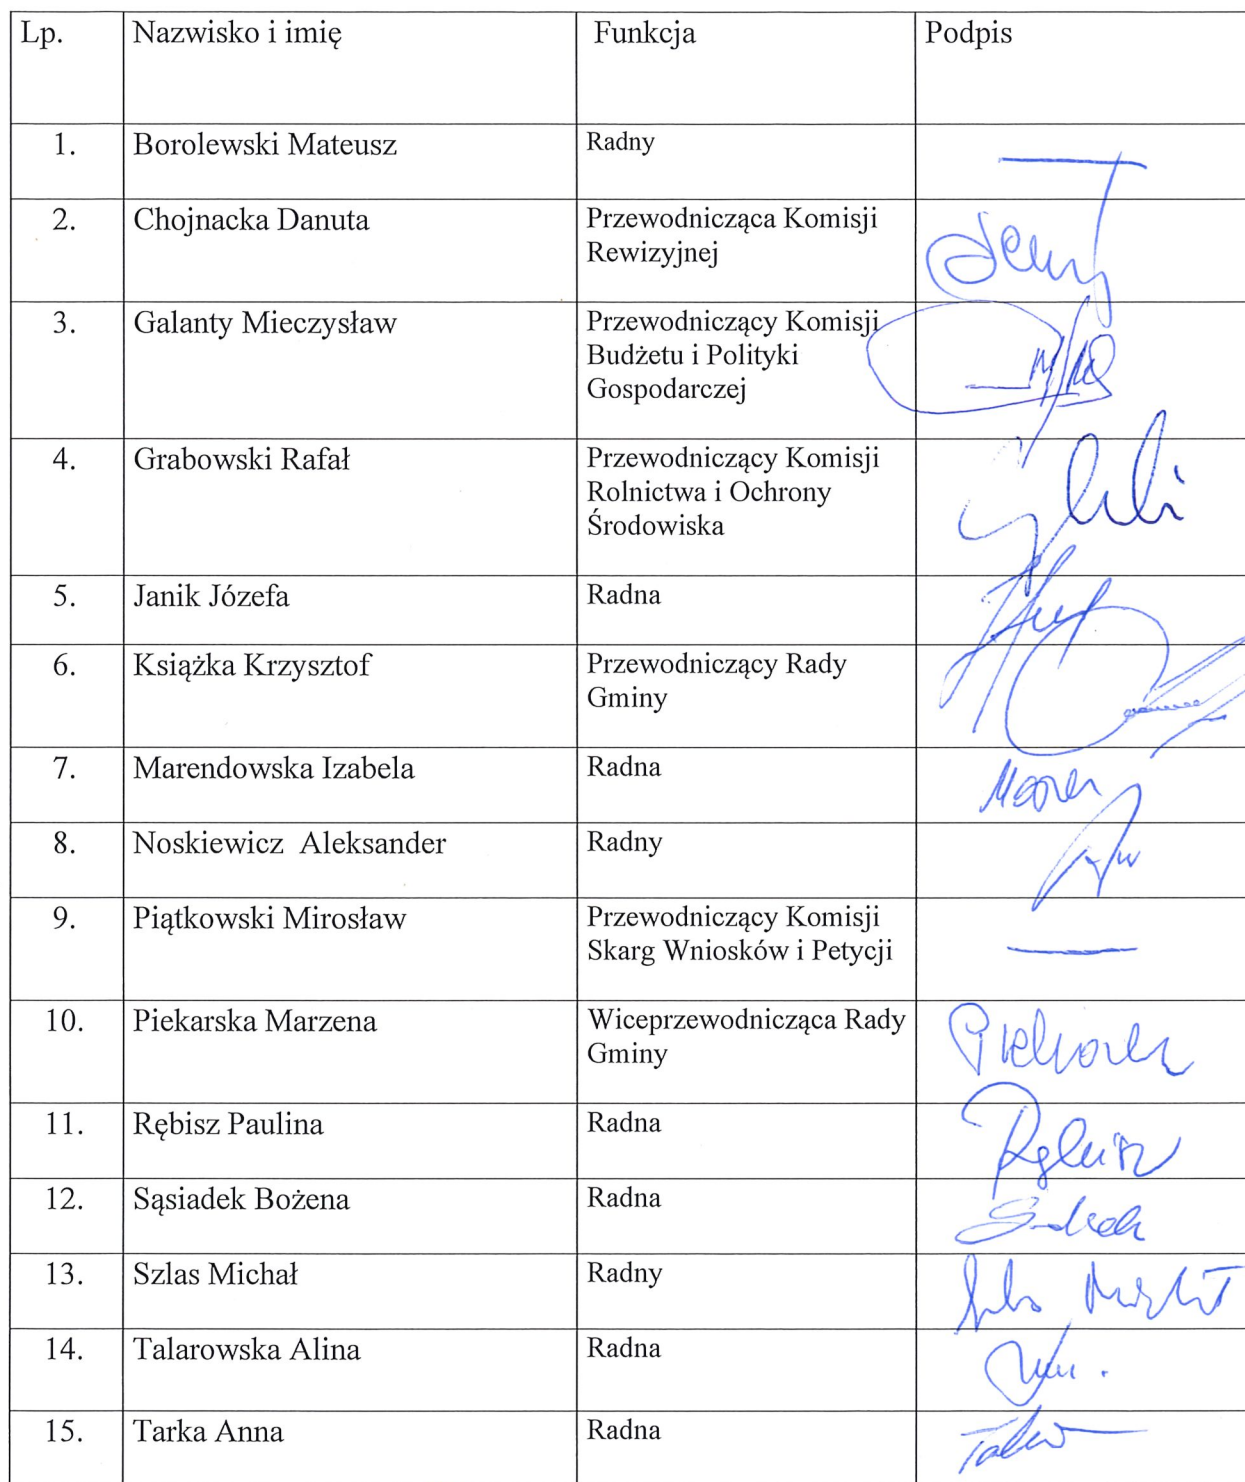 Lp. Nazwisko i imię Funkcja Podpis
1. Borolewski Mateusz Radny
2. Chojnacka Danuta Przewodnicząca Komisji
Rewizyjnej
3. Galanty Mieczysław Przewodniczący Komisji
Budżetu i Polityki
Gospodarczej
4. Grabowski Rafał Przewodniczący Komisji
Rolnictwa i Ochrony
Środowiska
5. Janik Józefa Radna
6. Książka Krzysztof Przewodniczący Rady
Gminy
7. Marendowska Izabela Radna
8. Noskiewicz Aleksander Radny
9. Piątkowski Mirosław Przewodniczący Komisji
Skarg Wniosków i Petycji
10. Piekarska Marzena Wiceprzewodnicząca Rady
Gminy
11. Rębisz Paulina Radna
12. Sąsiadek Bożena Radna
13. Szlas Michał Radny
14. Talarowska Alina Radna
15. Tarka Anna Radna